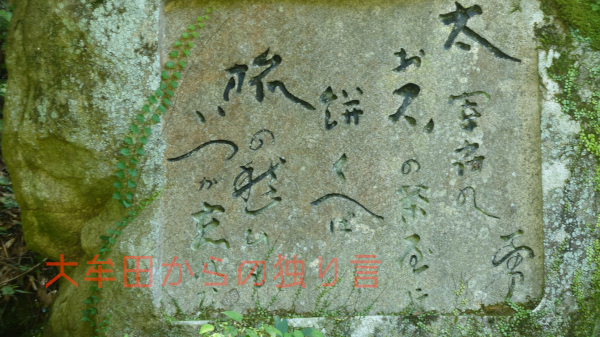 太宰府の
お石の茶屋に
餅くへば
旅の愁ひも
いつか忘
勇
大牟田からの独り言